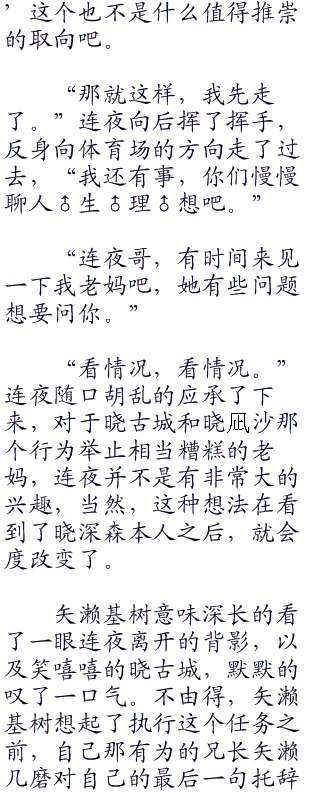 ’这个也不是什么值得推崇
的取向吧。
“那就这样，我先走
了。”连夜向后挥了挥手，
反身向体育场的方向走了过
去，“我还有事，你们慢慢
聊人♂生♂理♂想吧。”
“连夜哥，有时间来见
一下我老妈吧，她有些问题
想要问你。”
“看情况，看情况。”
连夜随口胡乱的应承了下
来，对于晓古城和晓凪沙那
个行为举止相当糟糕的老
妈，连夜并不是有非常大的
兴趣，当然，这种想法在看
到了晓深森本人之后，就会
度改变了。
矢濑基树意味深长的看
了一眼连夜离开的背影，以
及笑嘻嘻的晓古城，默默的
叹了一口气。不由得，矢濑
基树想起了执行这个任务之
前，自己那有为的兄长矢濑
几磨对自己的最后一句托辞